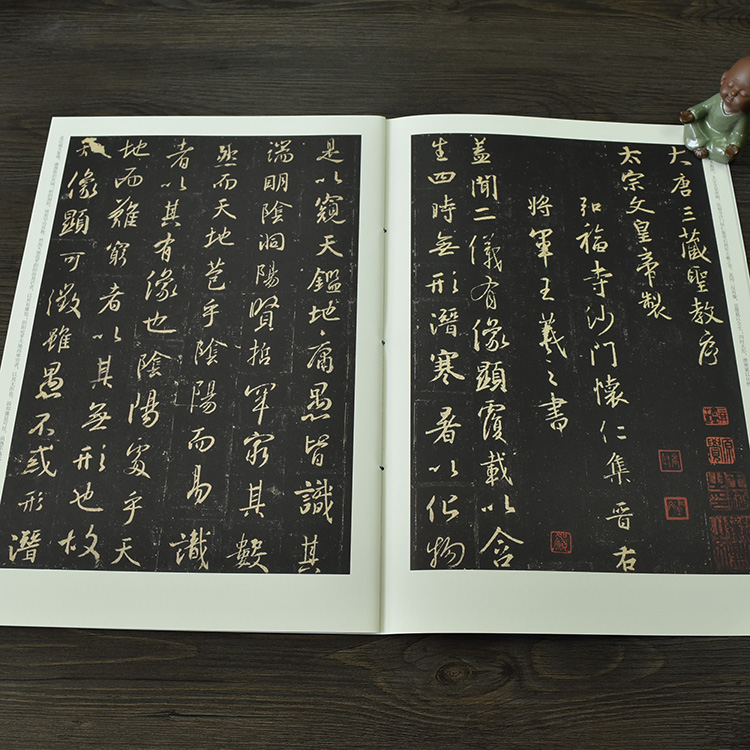 大唐三藏聖教序
太宗文皇帝製
弘福寺沙門懷仁集晉右
將軍王羲之書
蓋聞二儀有像顯覆載以含
生四時無形潛寒暑以化物
是以窺天鑑地庸愚皆識其
端明陰洞陽賢哲罕窮其數
然而天地苞乎陰陽而易識
者以其有像也陰陽處乎天
地而難窮者以其無形也故
知像顯可徵雖愚不惑形潛